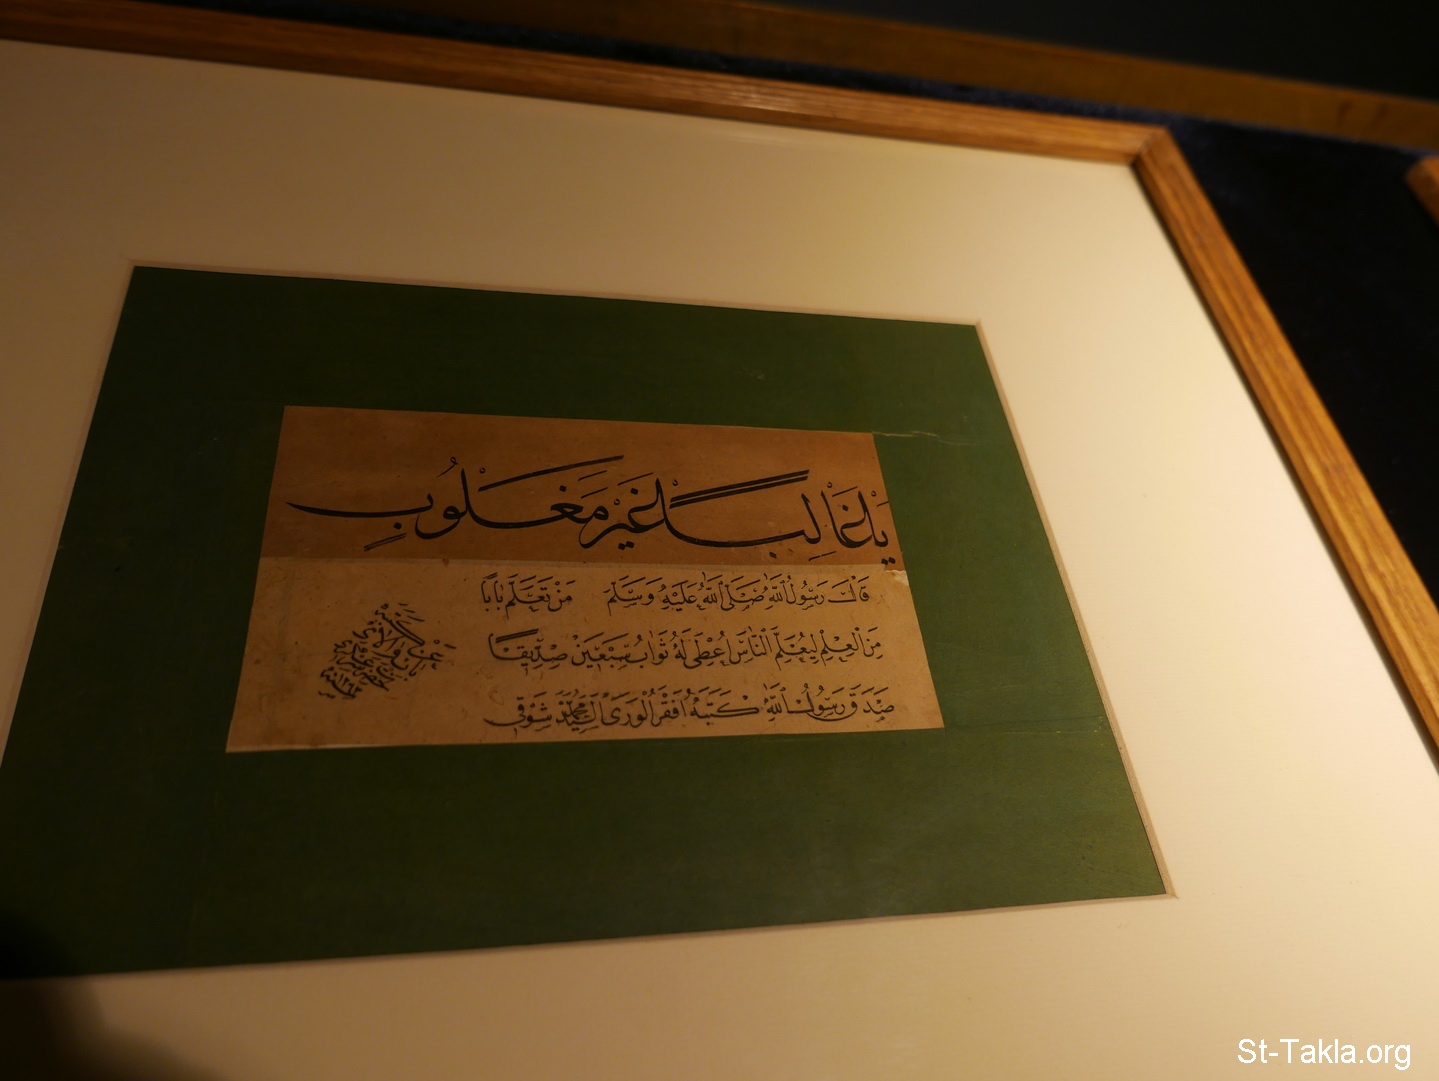 يا غالبا غير مغلوب
قَالَ رَسُولُ اللهِ صَلَّى اللهُ عَلَيْهِ وَسَلَّمَ مَنْ تَعَلَّمَ بَابًا
مِنَ الْعِلْمِ لِيُعَلِّمَ النَّاسَ اُعْطِىَ لَهُ ثَوَابُ سَبْعِينَ صِدِّيقًا
صَدَقَ رَسُولُ اللهِ كَتَبَهُ اَفْقَرُ الْوَرَى السَّيِّدُ مُحَمَّدْ شَوْقِى
St-Takla.org